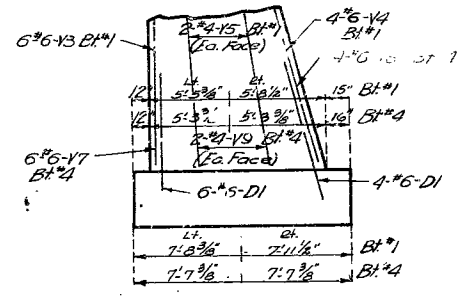 2-#4-V5 Bt.#1
(Ea. Face)
6-#6-V3 Bt.#1
4-#6-V4
Bt.#1
4-#6
Lt. Rt.
12" 5'-5 3/8" 5'-8 1/2" 15" Bt.#1
12" 5'-3 5'-3 3/8" 16" Bt.#4
2-#4-V9 Bt.#4
(Ea. Face)
6-#6-V7
Bt.#4
6-#5-D1
4-#6-D1
Lt. Rt.
7'-8 3/8" 7'-11 1/2" Bt.#1
7'-7 3/8" 7'-7 3/8" Bt.#4